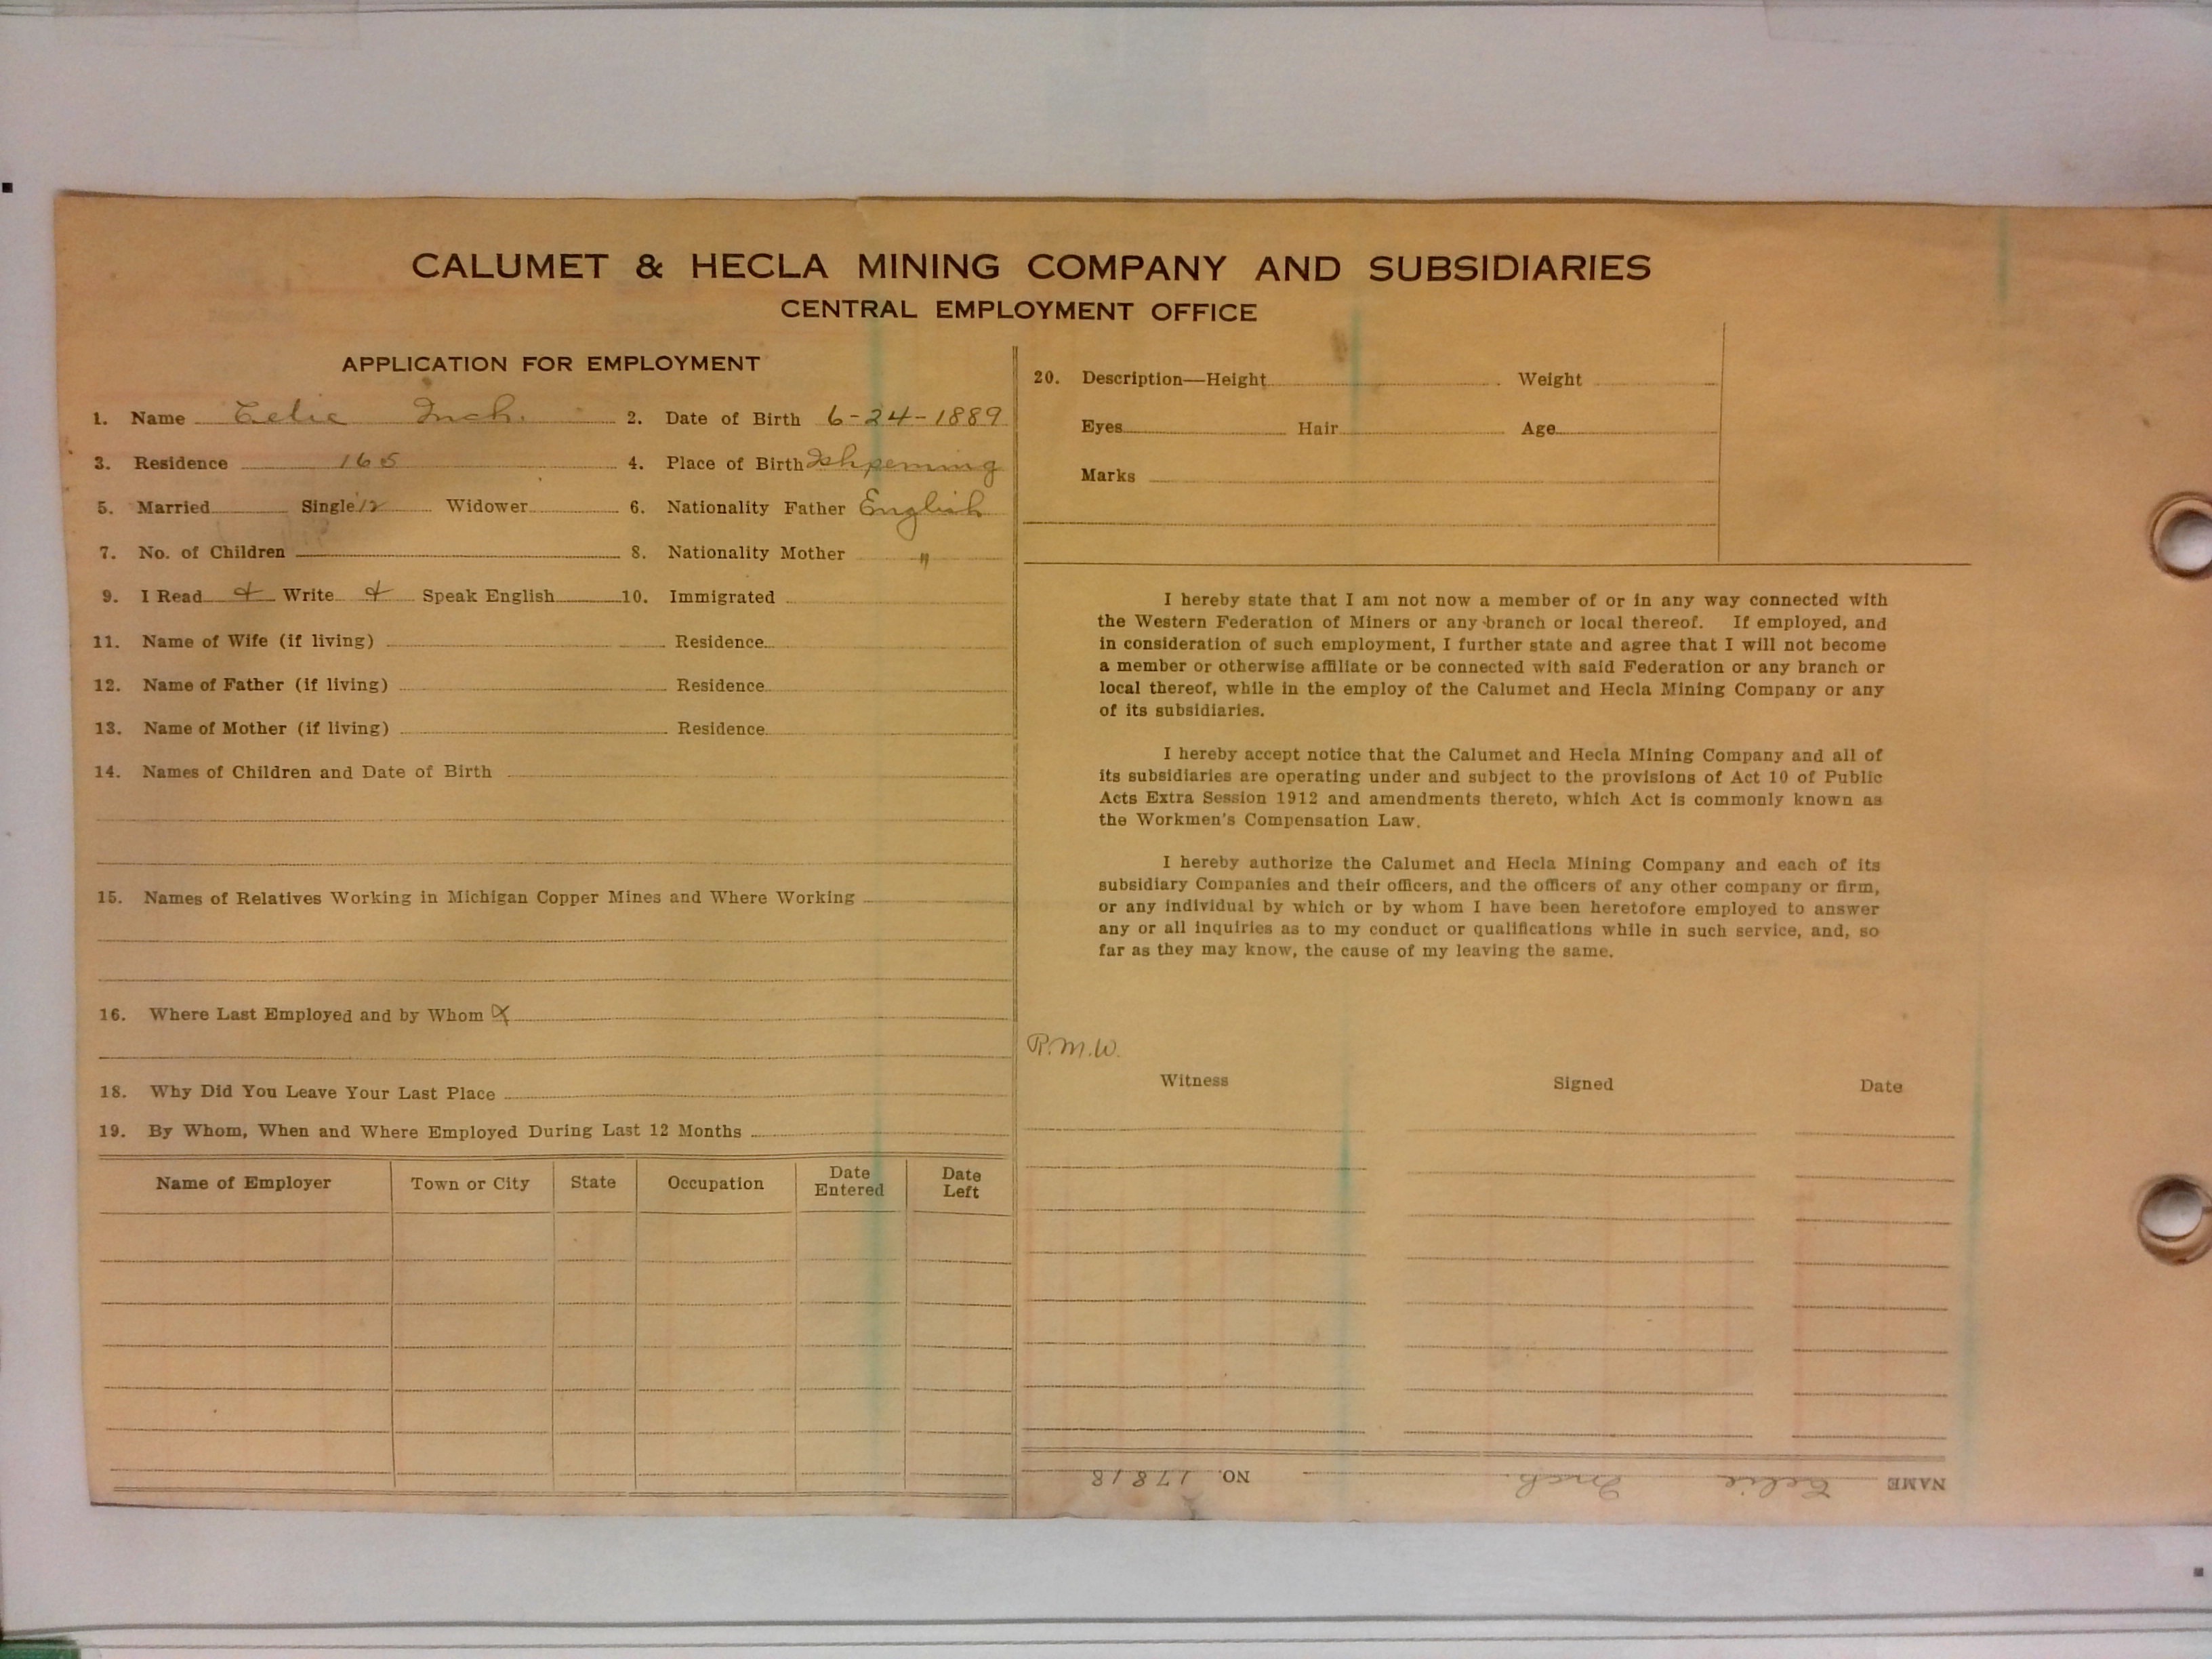 CALUMET & HECLA MINING COMPANY AND SUBSIDIARIES
CENTRAL EMPLOYMENT OFFICE
APPLICATION FOR EMPLOYMENT
1. Name Celie Inch. 2. Date of Birth 6-24-1889
3. Residence 165 4. Place of Birth Ishpeming
5. Married Single 12 Widower 6. Nationality Father English
7. No. of Children 8. Nationality Mother "
9. I Read + Write + Speak English 10. Immigrated
11. Name of Wife (if living) Residence
12. Name of Father (if living) Residence
13. Name of Mother (if living) Residence
14. Names of Children and Date of Birth
15. Names of Relatives Working in Michigan Copper Mines and Where Working
16. Where Last Employed and by Whom
18. Why Did You Leave Your Last Place
19. By Whom, When and Where Employed During Last 12 Months
Name of Employer Town or City State Occupation Date Entered Date Left
20. Description—Height Weight
Eyes Hair Age
Marks
I hereby state that I am not now a member of or in any way connected with
the Western Federation of Miners or any branch or local thereof. If employed, and
in consideration of such employment, I further state and agree that I will not become
a member or otherwise affiliate or be connected with said Federation or any branch or
local thereof, while in the employ of the Calumet and Hecla Mining Company or any
of its subsidiaries.
I hereby accept notice that the Calumet and Hecla Mining Company and all of
its subsidiaries are operating under and subject to the provisions of Act 10 of Public
Acts Extra Session 1912 and amendments thereto, which Act is commonly known as
the Workmen's Compensation Law.
I hereby authorize the Calumet and Hecla Mining Company and each of its
subsidiary Companies and their officers, and the officers of any other company or firm,
or any individual by which or by whom I have been heretofore employed to answer
any or all inquiries as to my conduct or qualifications while in such service, and, so
far as they may know, the cause of my leaving the same.
R.M.W.
Witness Signed Date
NAME Celie Inch. NO. 17818